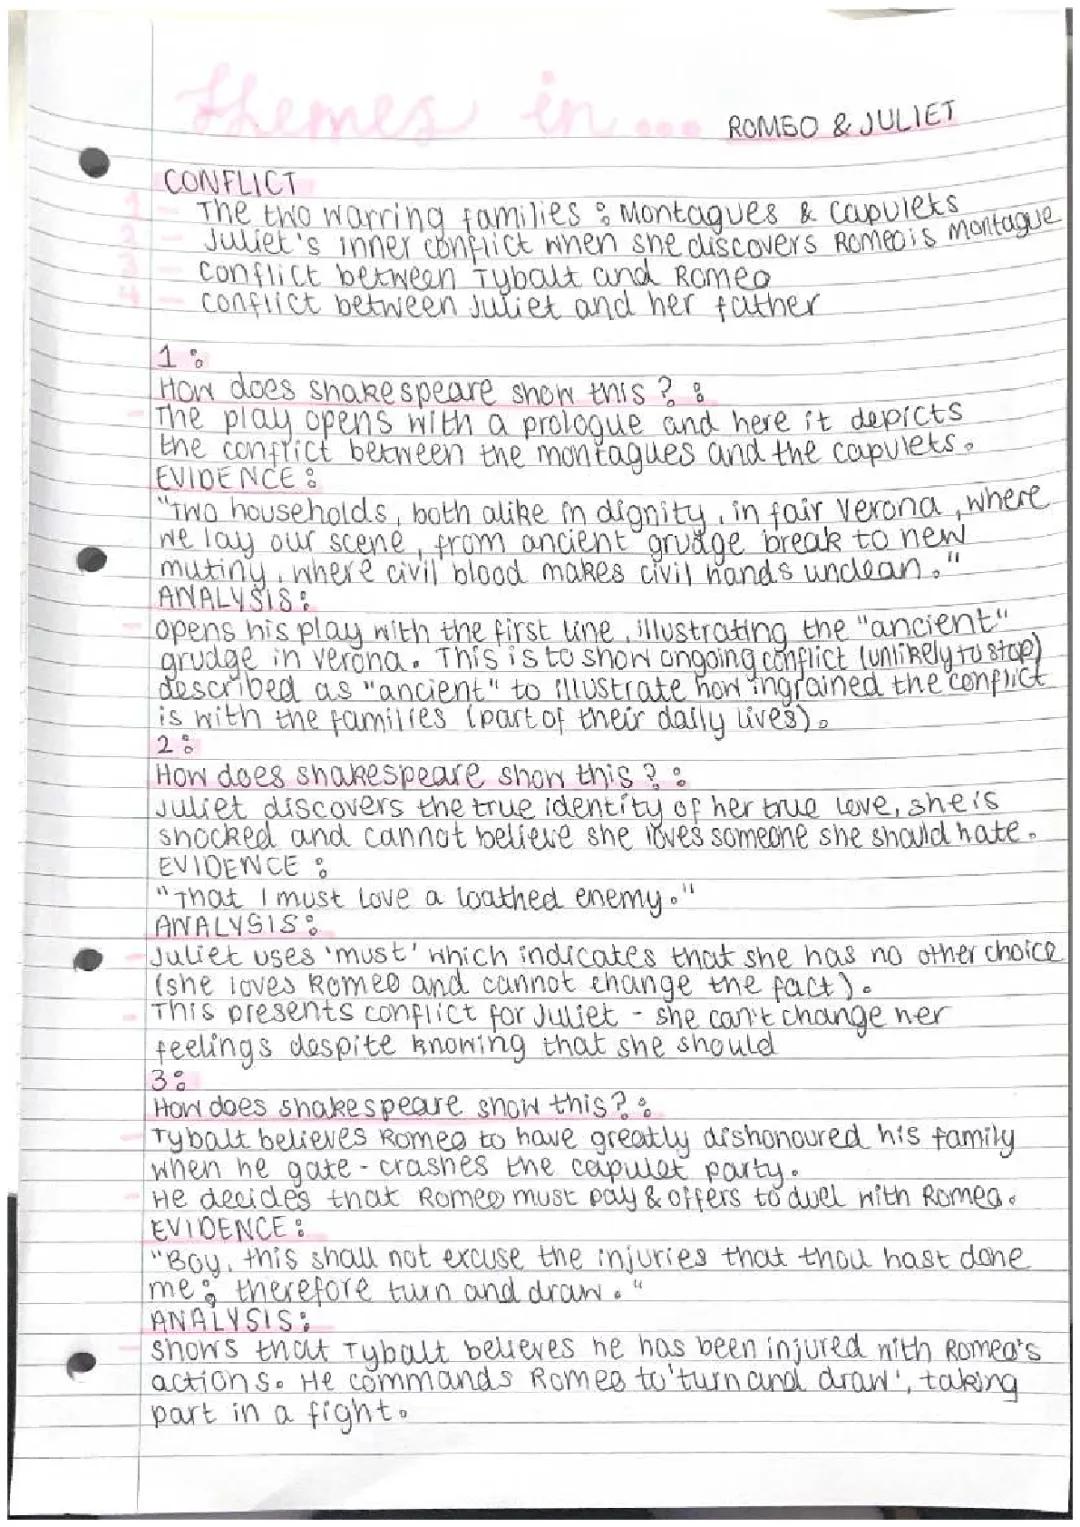 themes in... ROMEO & JULIET
CONFLICT
1 - The two warring families : Montagues & Capulets
2 - Juliet's inner conflict when she discovers Romeo is Montague
3 - conflict between Tybalt and Romeo
4 - conflict between Juliet and her father
1 :
How does shakespeare show this ? :
- The play opens with a prologue and here it depicts
the conflict between the montagues and the capulets.
EVIDENCE :
"Two households, both alike in dignity, in fair Verona, where
we lay our scene, from ancient grudge break to new
mutiny, where civil blood makes civil hands unclean."
ANALYSIS :
- opens his play with the first line, illustrating the "ancient"
grudge in verona. This is to show ongoing conflict (unlikely to stop)
described as "ancient" to illustrate how ingrained the conflict
is with the families (part of their daily lives).
2 :
How does shakespeare show this ? :
Juliet discovers the true identity of her true love, she is
shocked and cannot believe she loves someone she should hate.
EVIDENCE :
"That I must love a loathed enemy."
ANALYSIS :
- Juliet uses 'must' which indicates that she has no other choice
(she loves Romeo and cannot change the fact).
- This presents conflict for Juliet - she can't change her
feelings despite knowing that she should
3 :
How does shakespeare show this? :
- Tybalt believes Romeo to have greatly dishonoured his family
when he gate-crashes the capulet party.
- He decides that Romeo must pay & offers to duel with Romeo.
EVIDENCE :
"Boy, this shall not excuse the injuries that thou hast done
me; therefore turn and draw."
ANALYSIS :
- shows that Tybalt believes he has been injured with Romeo's
actions. He commands Romeo to 'turn and draw', taking
part in a fight.